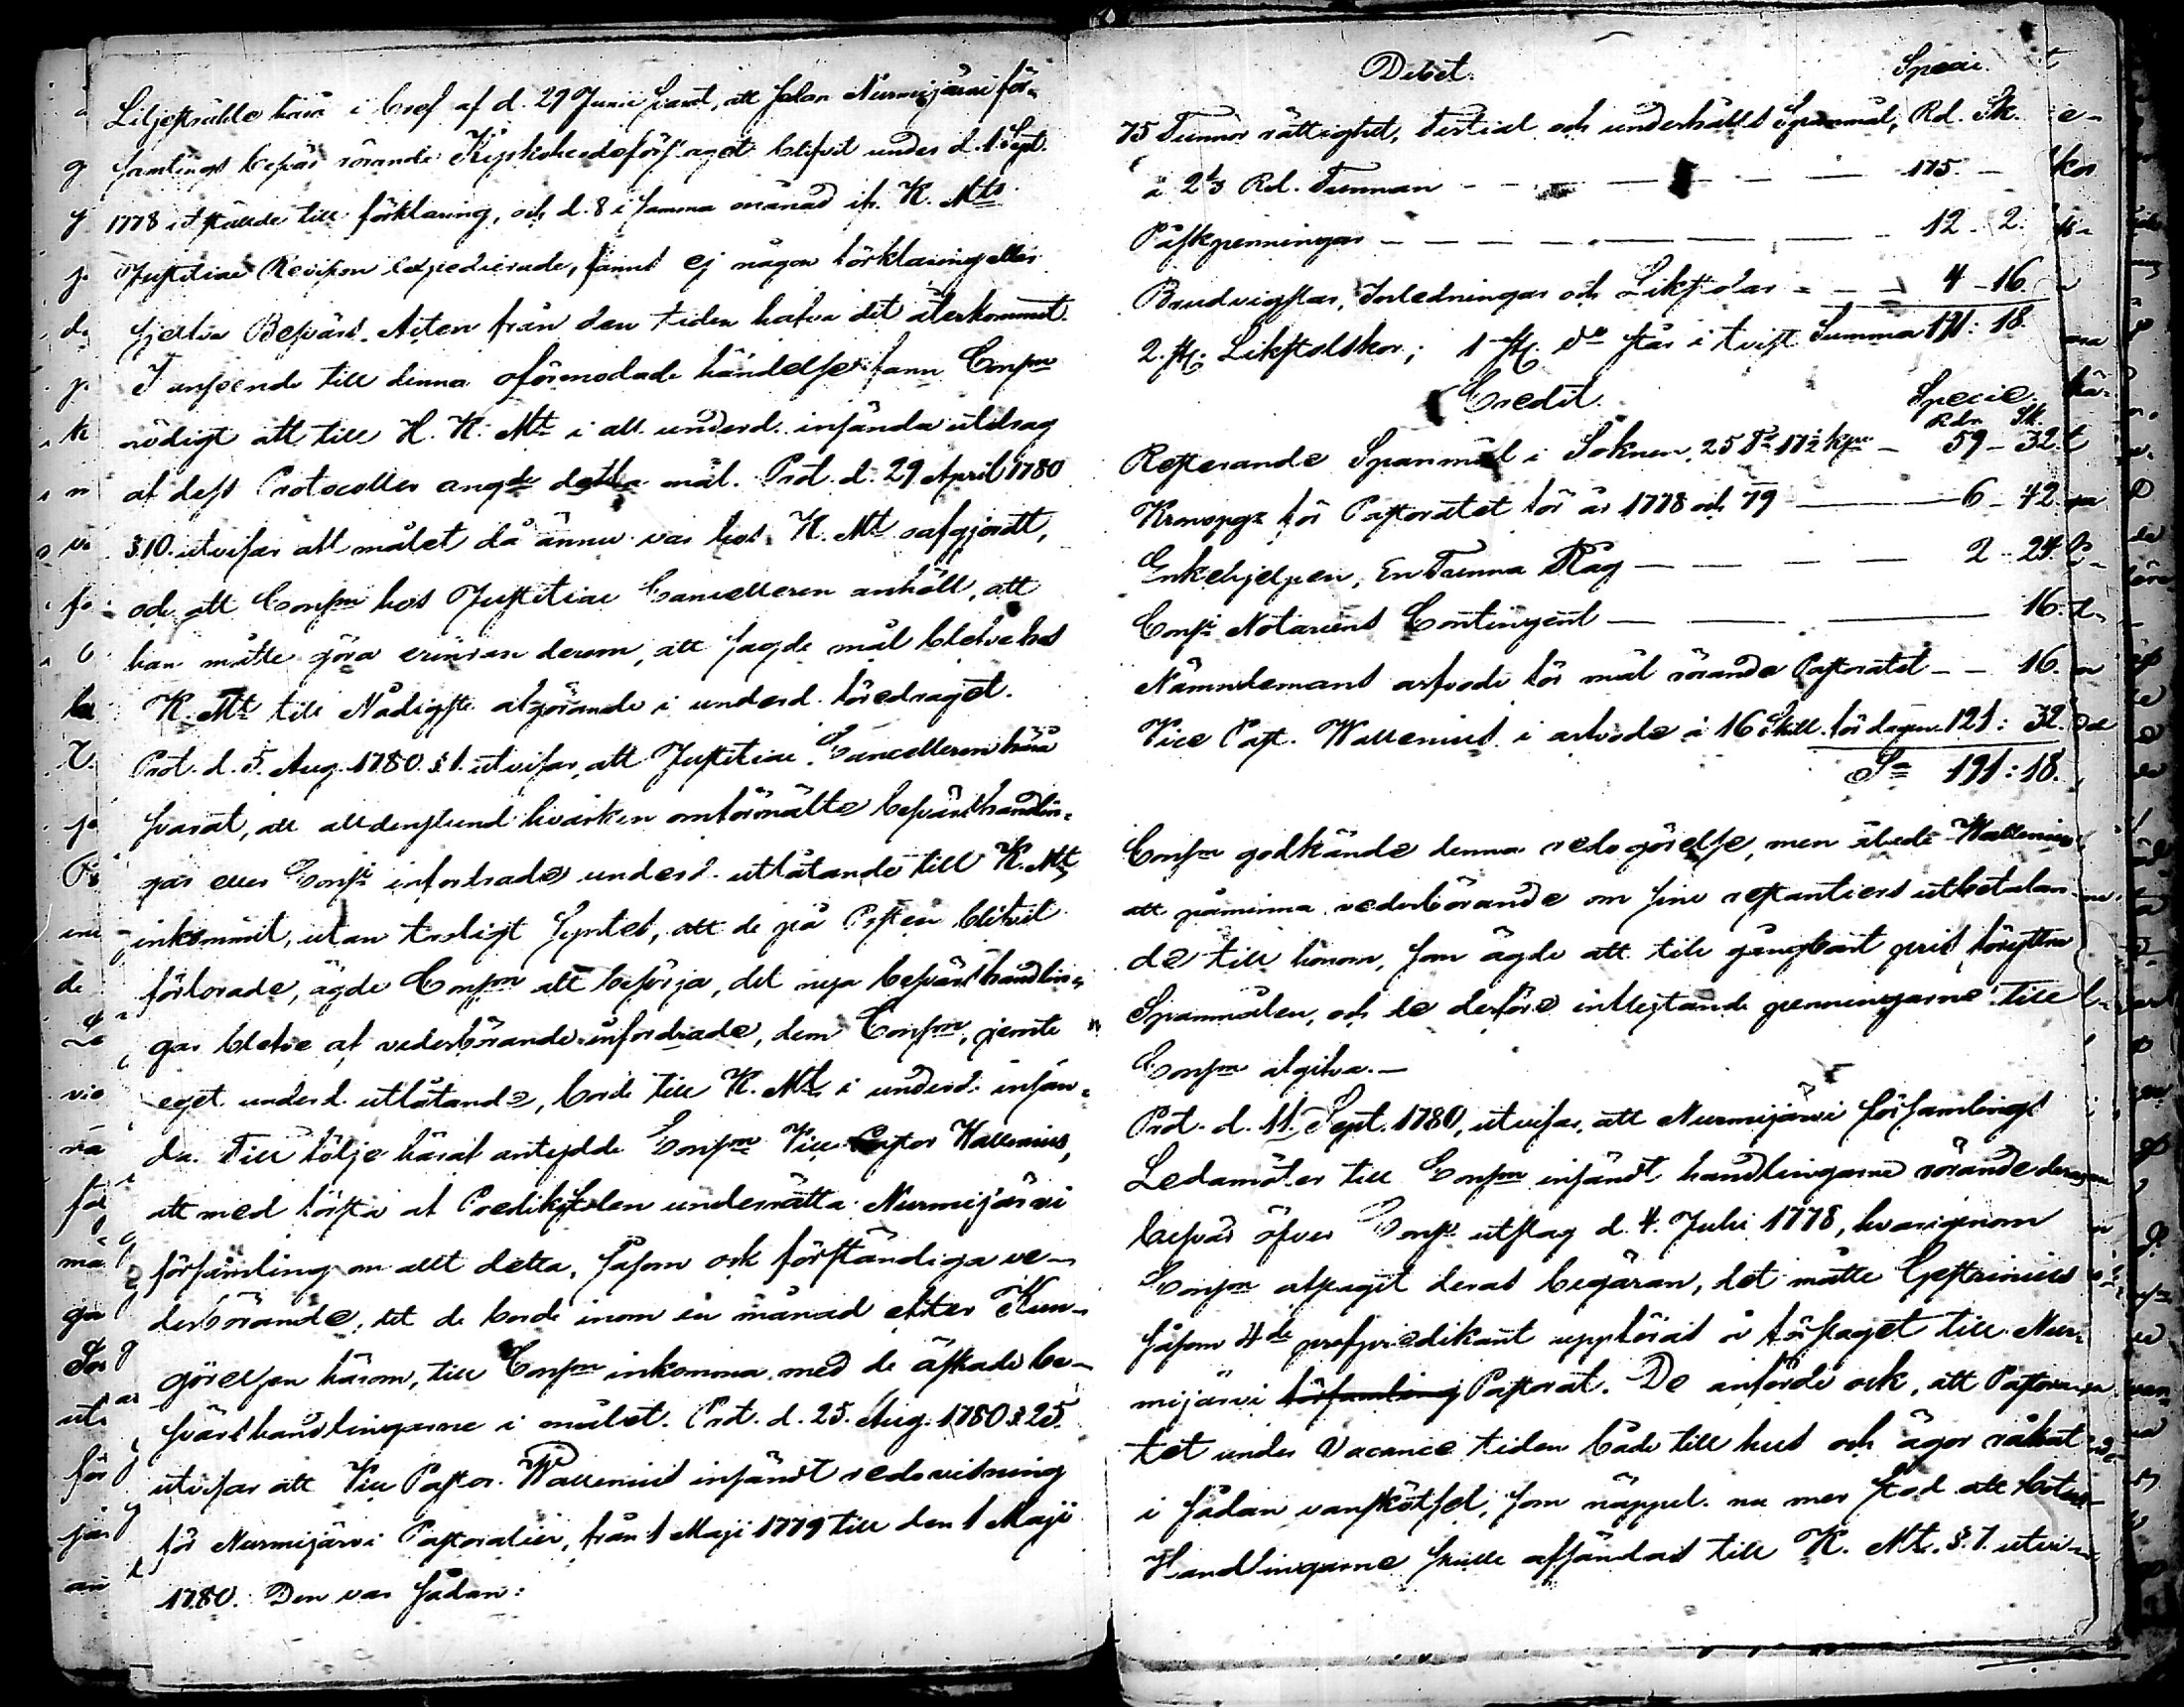 Liljestråhle havа i bref af d. 29 Junii svarat, att sedan Nurmijärvi för-
samlings besvär rörande Kyrkoherdeförslaget blifvit under d. 1 Sept.
1778 utstälde till förklaring, och d. 8 i samma månad ifr. K. Mts
Justitiae Revision expedierade, fanns ej någon förklaring eller
sjelfva Besvärs-Acten från den tiden hafva dit återkommit.
I anseende till denna oförmodade händelse fann Consm
nödigt att till H. K. Mt i all underd. insända utdrag
af dess Protocoller angde detta mål. Prot. d. 29 April 1780
§.10. utvisar att målet då ännu var hos K. Mt oafgjordt,
och att Consm hos Justitiae Cancelleren anhöll, att
han måtte göra erinran derom, att sagde mål blefve hos
K. Mt till Nådigste afgörande i underd. föredraget.
Prot. d. 5. Aug. 1780. §1. utvisar, att Justitiae Cancelleren hära
svarat, att alldenstund hvarken omförmälte besvärshandlin-
gar eller Consi infordrade underd. utlåtande till K. Mt
inkommit, utan troligt syntes, att de på Posten blifvit
förlorade, ägde Consm att besörja, det nya besvärshandlin-
gar blefve af vederbörande infordrade, dem Consm, jemte
eget underd. utlåtande, borde till K. Mt i underd. insän-
da. Till följe häraf antydde Consm Vice Pastor Wallenius,
att med första af Predikstolen underrätta Nurmijärvi
församling om allt detta, såsom ock förständiga ve-
derbörande, att de borde inom en månad efter Kun-
görelsen härom, till Consm inkomma med de äskade be-
svärshandlingarne i målet. Prot. d. 25. Aug. 1780 §25.
utvisar att Vice Pastor Wallenius insändt redovisning
för Nurmijärvi Pastoratier, från 1 Maji 1779 till den 1 Maji
1780. Den var sådan:
Debet. Speci.
75 Tunnor rättighet, Tertial och underhålls Spanmål, Rd. Sk.
à 2 1/3 Rd. Tunnan - - - 175. -
Påskpenningar - - - 12 - 2.
Brudvigslar, Inledningar och Likstolar - - - 4 - 16
2. st. Likstolskor; 1 st. do står i tvist Summa 191: 18.
Credit. Specie.
Rdr Sk.
Resterande Spanmål i Soknen, 25 Ta 17 1/2 kpr - 59 - 32.
Kronopgr för Pastoratet för år 1778 och 79 - 6 - 42
Enkehjelpen, En Tunna Råg - - - 2 - 24.
Consi Notariens Contingent - - - 16.
Nämndemans arfvode för mål rörande Pastoratet - - 16.
Vice Past. Wallenius i arfvode à 16 Skill. för dagen 121: 32.
Sa 191: 18.
Consm godkände denna redogörelse, men ålade Wallenius
att påminna vederbörande om sine restantiers utbetalan-
de till honom, som ägde att till gångbart pris föryttra
Spanmålen, och de derföre inflytande penningarne till
Consm afgifva. -
Prot. d. 11. Sept. 1780, utvisar, att Nurmijärvi församlings
Ledamöter till Consm insändt handlingarne rörande deras
besvär öfver Consi utslag d. 4. Julii 1778, hvarigenom
Consm afslagit deras begäran, det måtte Gestrinius
såsom 4de profpredikant uppföras å förslaget till Nur-
mijärvi församling Pastorat. De anförde ock, att Pastora-
tet under Vacance tiden både till hus och ägor råkat
i sådan vanskötsel, som näppel. nu mer stod att botas
Handlingarne skulle afsändas till K. Mt. §. 7. utvi-